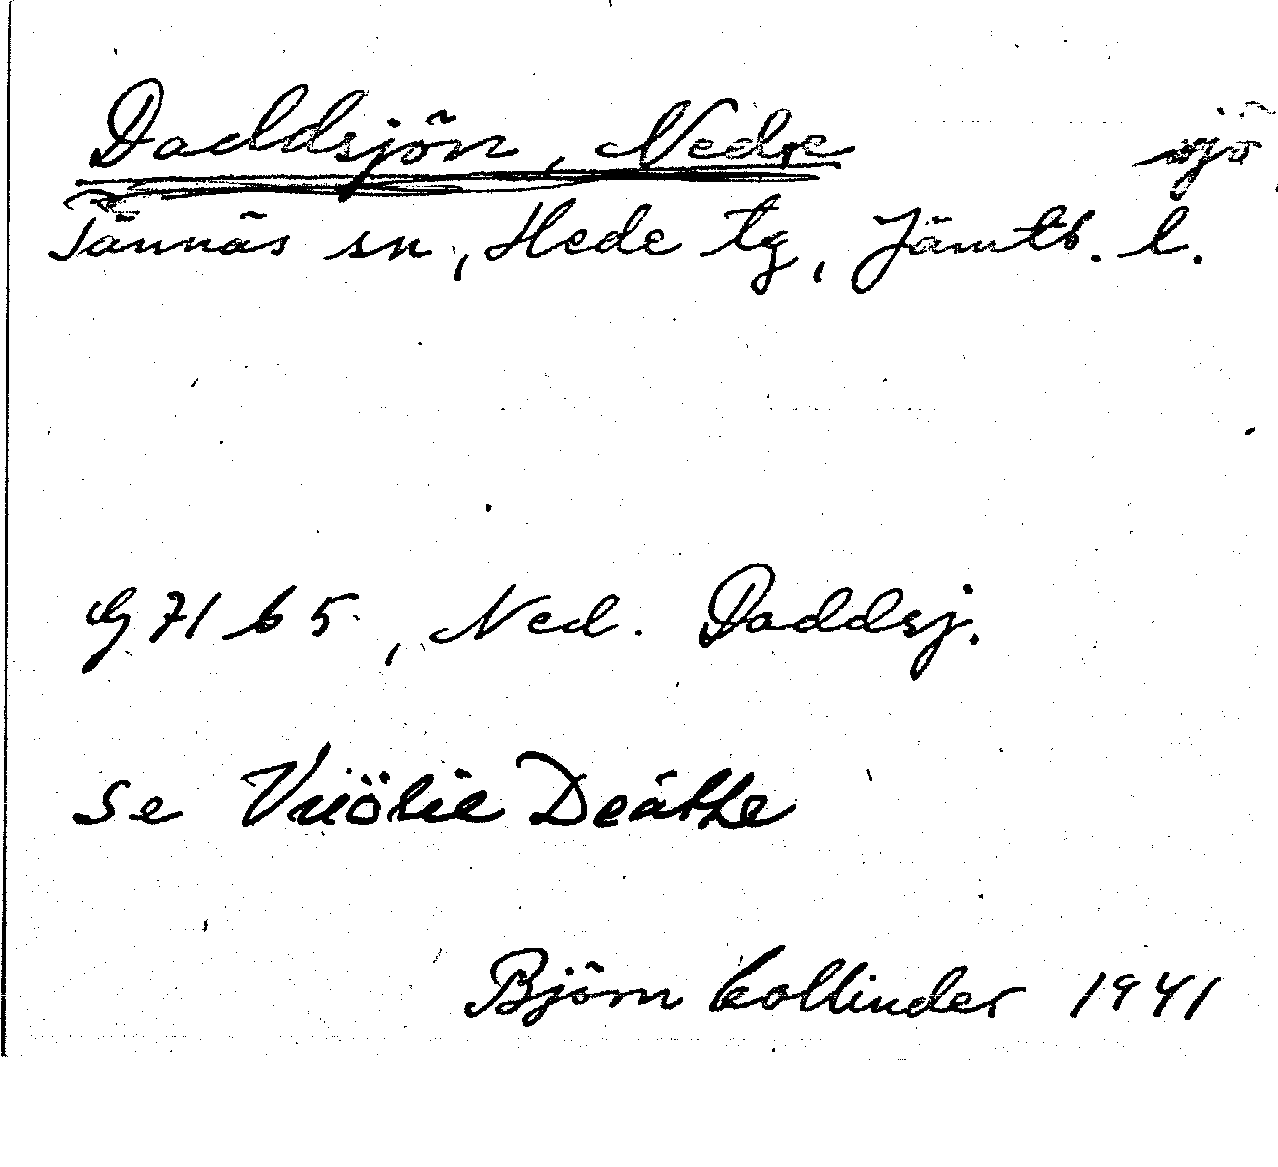 Daddsjön, Nedre sjö
Tännäs sn, Hede tg, Jämtl. l.
G 71 b 5, Ned. Daddsj.
se Vuölie Deätke
Björn Collinder 1941